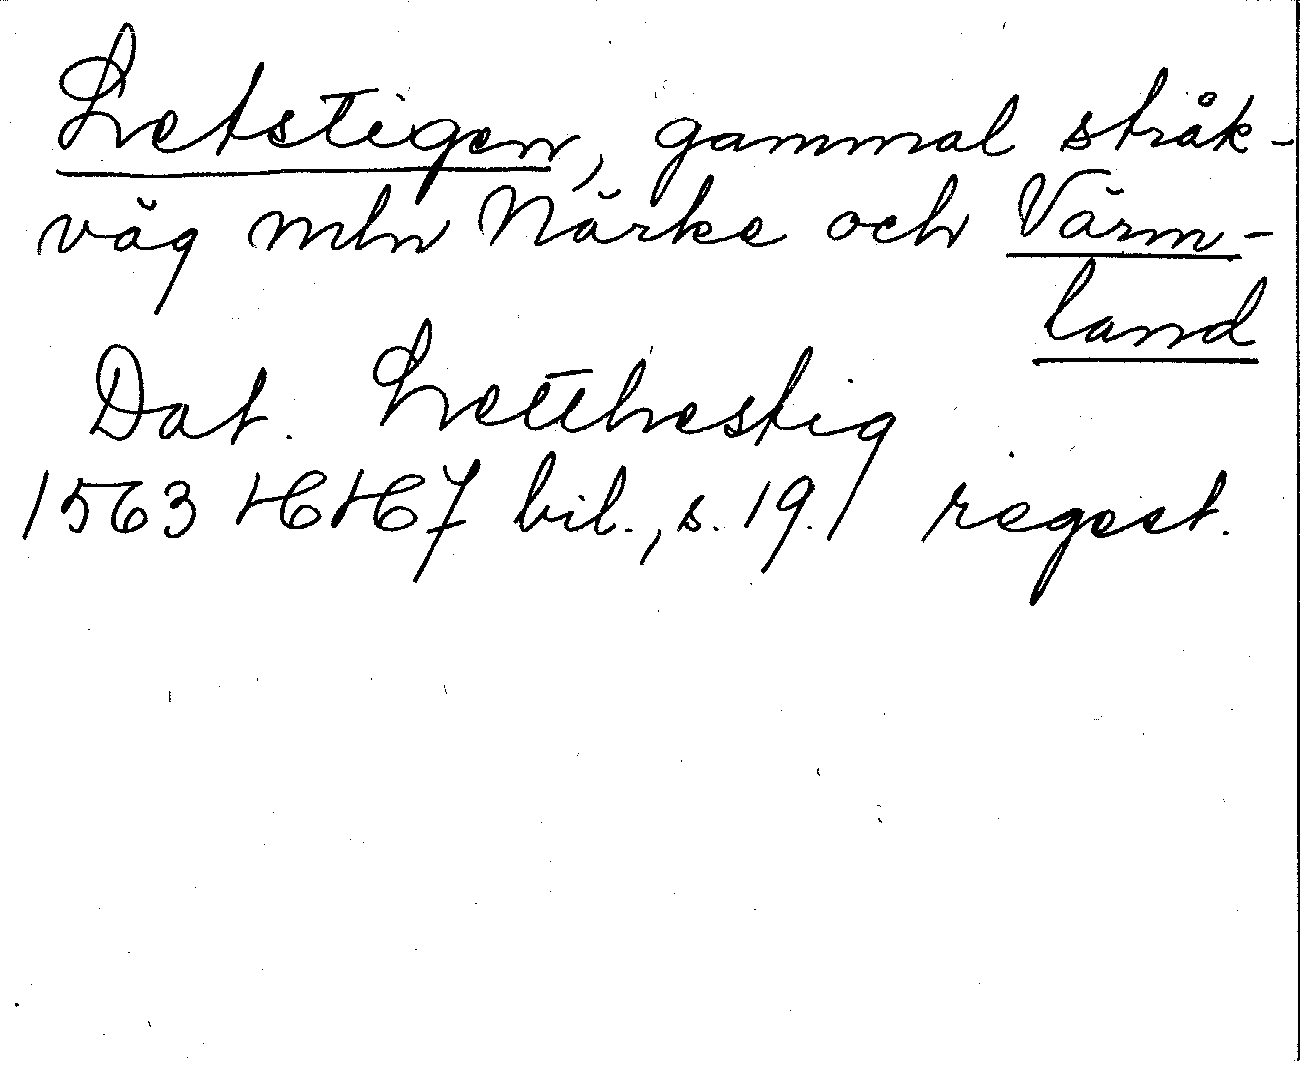 Letstigen, gammal stråk-
väg mln Närke och Värm-
land
Dat. Letthestig
1563 HH7 bil., s. 19. regest.